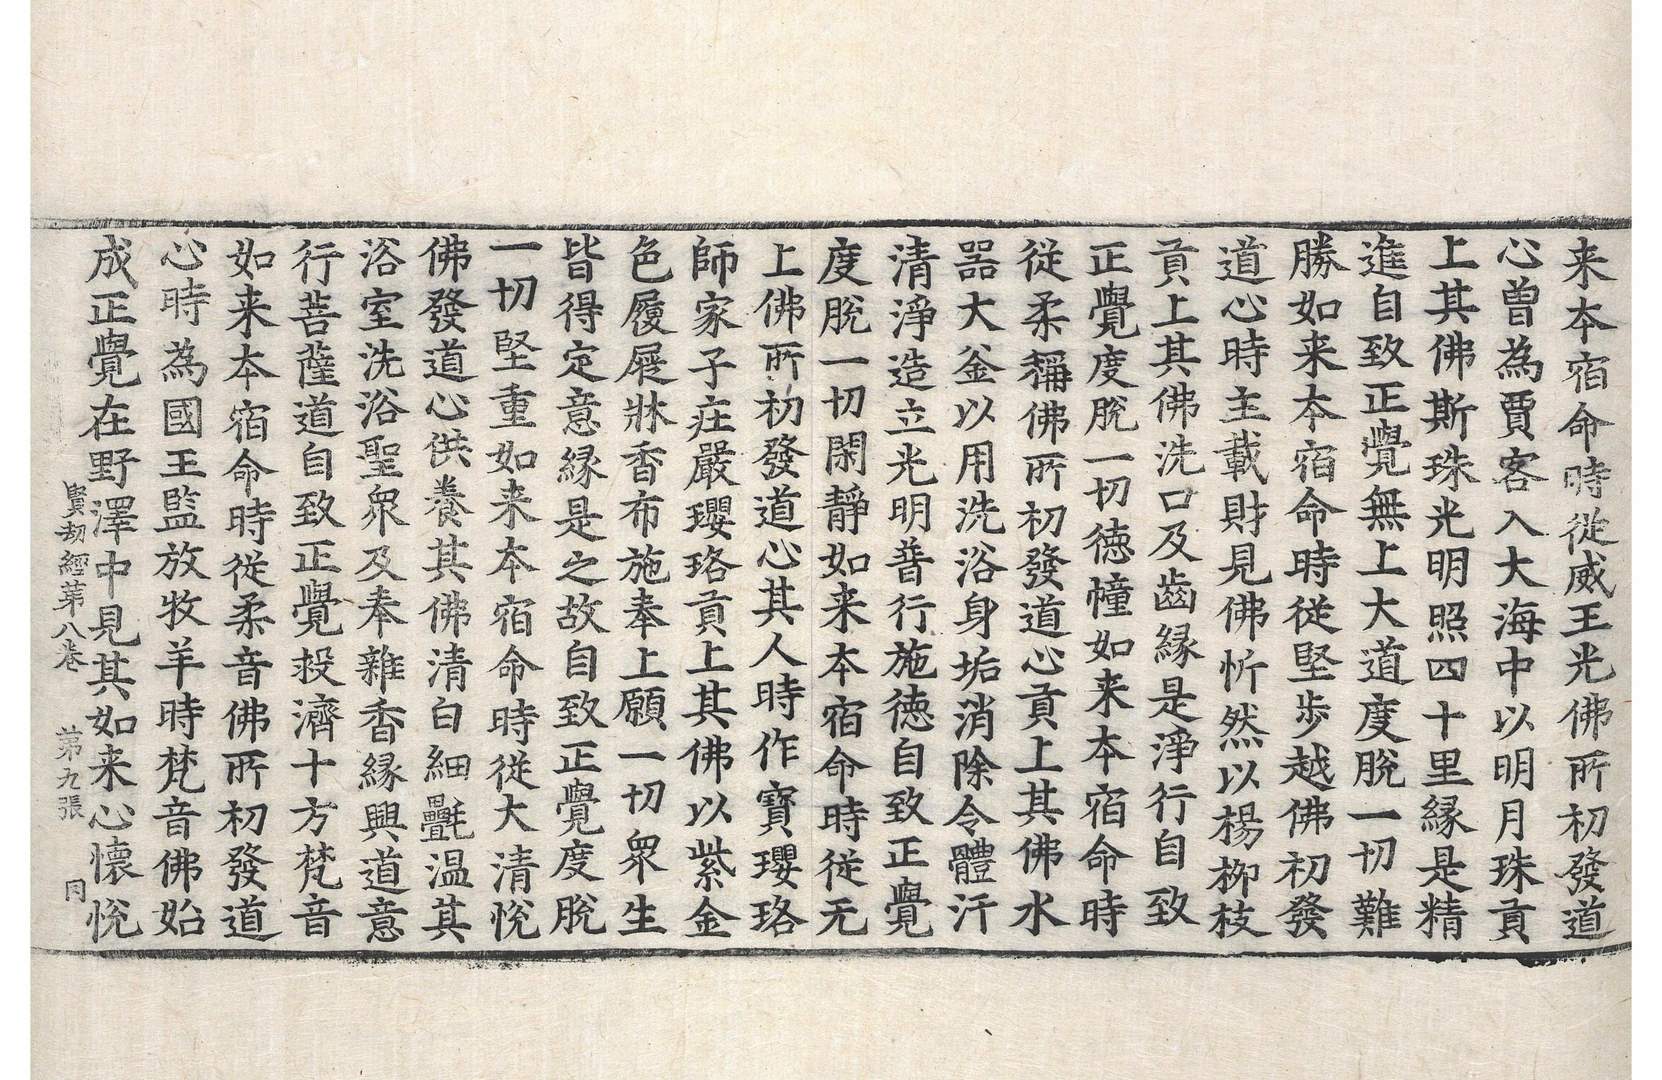 来本宿命時從威王光佛所初發道
心曽為賈客入大海中以明月珠貢
上其佛斯珠光明照四十里縁是精
進自致正覺無上大道度脫一切難
勝如来本宿命時從堅步越佛初發
道心時主載財見佛忻然以楊柳枝
貢上其佛洗口及齒縁是淨行自致
正覺度脫一切德幢如来本宿命時
從柔稱佛所初發道心貢上其佛水
器大釜以用洗浴身垢消除令體汗
清淨造立光明普行施德自致正覺
度脫一切閑靜如来本宿命時從无
上佛所初發道心其人時作寶瓔珞
師家子庄嚴瓔珞貢上其佛以紫金
色履屣牀香布施奉上願一切眾生
皆得定意縁是之故自致正覺度脫
一切堅重如来本宿命時從大清悅
佛發道心供養其佛清白細㲲温其
浴室洗浴聖眾及奉雜香縁興道意
行菩薩道自致正覺投濟十方梵音
如来本宿命時從柔音佛所初發道
心時為國王監放牧羊時梵音佛始
成正覺在野澤中見其如来心懷悅
賢劫經第八卷 第九張 同